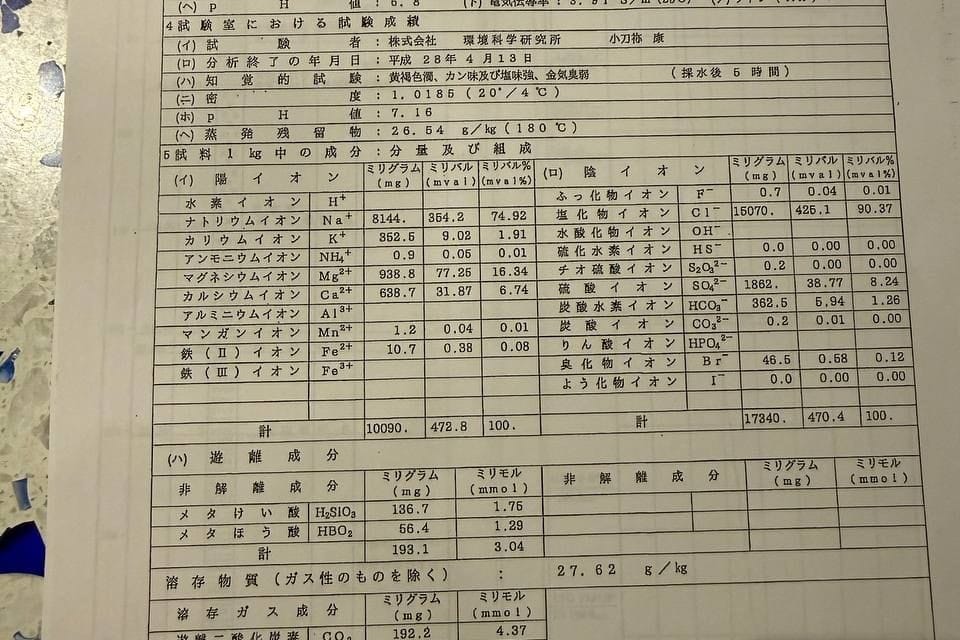 (ヘ) p H 値 : 6.8 (ト) 電気伝導率 :
4試験室における試験成績
(イ) 試験者 : 株式会社 環境科学研究所 小刀祢 康
(ロ) 分析終了の年月日 : 平成 28年 4月13日
(ハ) 知覚的試験 : 黄褐色濁、カン味及び塩味強、金気臭弱 (採水後 5 時間)
(ニ) 密度 : 1.0185 (20°/4℃)
(ホ) p H 値 : 7.16
(ヘ) 蒸発残留物 : 26.54 g/kg (180℃)
5試料1kg中の成分 : 分量及び組成
(イ) 陽イオン ミリグラム(mg) ミリバル(mval) ミリバル%(mval%) (ロ) 陰イオン ミリグラム(mg) ミリバル(mval) ミリバル%(mval%)
水素イオン H⁺ ふっ化物イオン F⁻ 0.7 0.04 0.01
ナトリウムイオン Na⁺ 8144. 354.2 74.92 塩化物イオン Cl⁻ 15070. 425.1 90.37
カリウムイオン K⁺ 352.5 9.02 1.91 水酸化物イオン OH⁻
アンモニウムイオン NH₄⁺ 0.9 0.05 0.01 硫化水素イオン HS⁻ 0.0 0.00 0.00
マグネシウムイオン Mg²⁺ 938.8 77.25 16.34 チオ硫酸イオン S₂O₃²⁻ 0.2 0.00 0.00
カルシウムイオン Ca²⁺ 638.7 31.87 6.74 硫酸イオン SO₄²⁻ 1862. 38.77 8.24
アルミニウムイオン Al³⁺ 炭酸水素イオン HCO₃⁻ 362.5 5.94 1.26
マンガンイオン Mn²⁺ 1.2 0.04 0.01 炭酸イオン CO₃²⁻ 0.2 0.01 0.00
鉄(Ⅱ)イオン Fe²⁺ 10.7 0.38 0.08 りん酸イオン HPO₄²⁻
鉄(Ⅲ)イオン Fe³⁺ 臭化物イオン Br⁻ 46.5 0.58 0.12
よう化物イオン I⁻ 0.0 0.00 0.00
計 10090. 472.8 100. 計 17340. 470.4 100.
(ハ) 遊離成分
非解離成分 ミリグラム(mg) ミリモル(mmol) 非解離成分 ミリグラム(mg) ミリモル(mmol)
メタけい酸 H₂SiO₃ 136.7 1.75
メタほう酸 HBO₂ 56.4 1.29
計 193.1 3.04
溶存物質(ガス性のものを除く) : 27.62 g/kg
溶存ガス成分 ミリグラム(mg) ミリモル(mmol)
遊離二酸化炭素 CO₂ 192.2 4.37